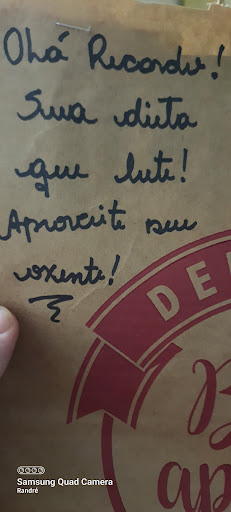 Olá Ricardo!
Sua dieta
que lute!
Aproveite seu
oxente!
DE
B
ap
Samsung Quad Camera
Randré